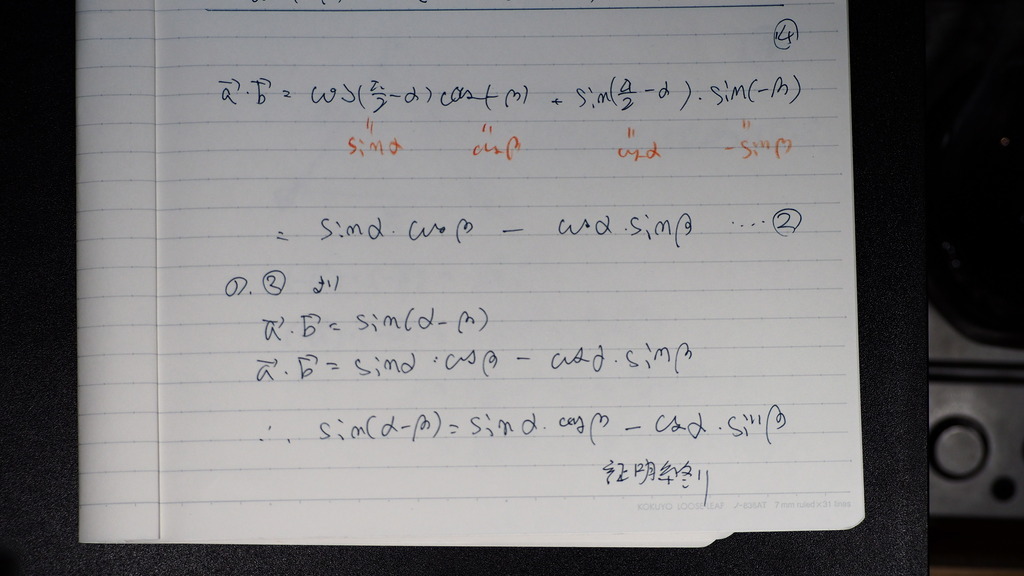 ④
a⃗·b⃗ = cos(π/2-α) cos(-β) + sin(π/2-α)·sin(-β)
" " " "
sinα cosβ cosα -sinβ
= sinα·cosβ - cosα·sinβ ....②
①.② より
a⃗·b⃗ = sin(α-β)
a⃗·b⃗ = sinα·cosβ - cosα·sinβ
∴ sin(α-β) = sinα·cosβ - cosα·sinβ
証明終り
KOKUYO LOOSE-LEAF 7 mm ruled×31 lines